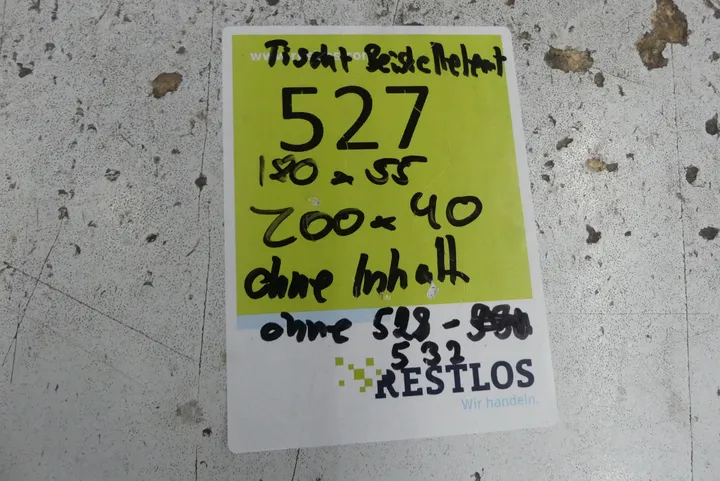 Tischt Beistellelemt
527
180 x 55
200 x 40
ohne Inhalt
ohne 528 -
532
RESTLOS
Wir handeln.